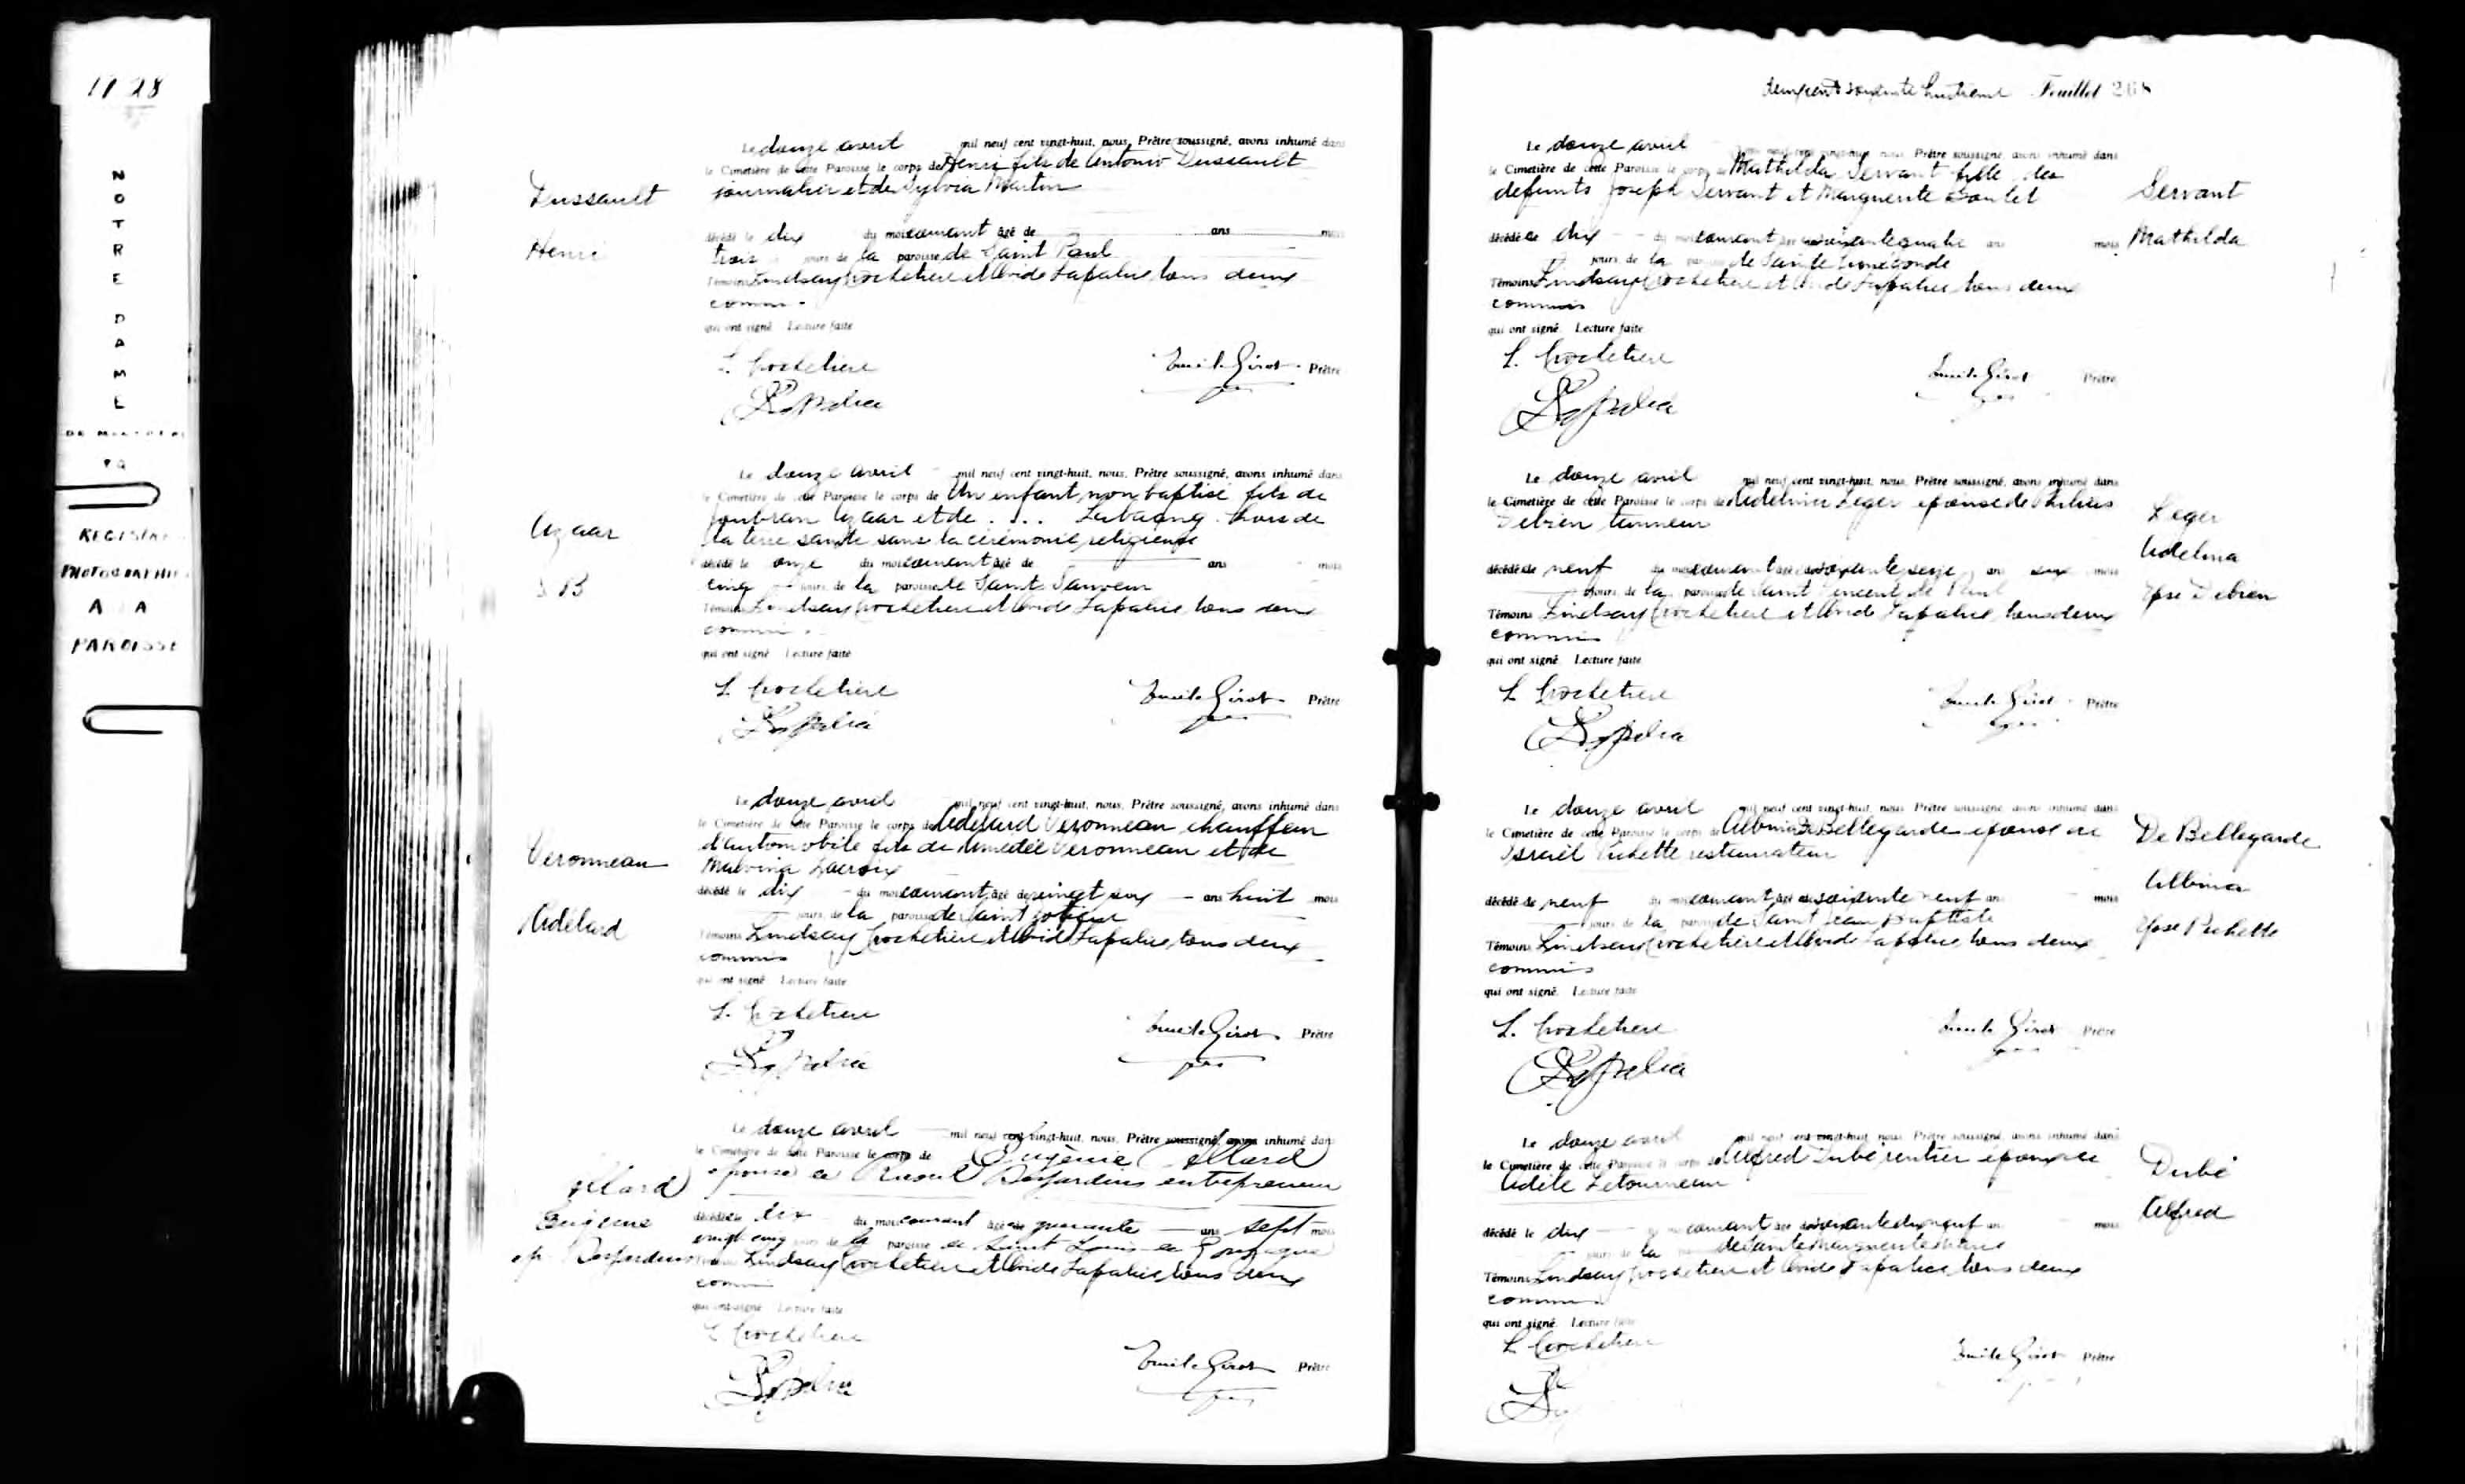 1928
NOTRE DAME
DE MONTREAL
PQ
REGISTRE
PHOTOGRAPHIE
A LA
PAROISSE
Dussault
Henri
Le douze avril mil neuf cent vingt-huit, nous, Prêtre soussigné, avons inhumé dans
le Cimetière de cette Paroisse le corps de Henri fils de Antonio Dussault
journalier et de Sylvia Martin
décédé le dix du mois courant âgé de ans mois
trois jours de la paroisse de Saint Paul
Témoins Lindsay Crochetiere et Ovide Lapalice, tous deux
commis
qui ont signé Lecture faite
L. Crochetiere
Emile Girot Prêtre
Lapalice
Azaar
Le douze avril mil neuf cent vingt-huit, nous, Prêtre soussigné, avons inhumé dans
le Cimetière de cette Paroisse le corps de Un enfant, non baptisé fils de
Joubran Azaar et de . . . hors de
la terre sainte sans la cérémonie religieuse
décédé le onze du mois courant âgé de ans mois
cinq jours de la paroisse de Saint Sauveur
Témoins Lindsay Crochetiere et Ovide Lapalice, tous deux
commis
qui ont signé Lecture faite
L. Crochetiere
Emile Girot Prêtre
Lapalice
Veronneau
Adélard
Le douze avril mil neuf cent vingt-huit, nous, Prêtre soussigné, avons inhumé dans
le Cimetière de cette Paroisse le corps de Adélard Veronneau chauffeur
d'automobile fils de Amédée Veronneau et de
Malvina Lacroix
décédé le dix du mois courant, âgé de vingt six ans huit mois
jours de la paroisse de Saint Zotique
Témoins Lindsay Crochetiere et Ovide Lapalice, tous deux
commis
qui ont signé Lecture faite
L. Crochetiere
Emile Girot Prêtre
Lapalice
Allard
Eugenie
ep. Desjardins
Le douze avril mil neuf cent vingt-huit, nous, Prêtre soussigné, avons inhumé dans
le Cimetière de cette Paroisse le corps de Eugènie Allard
épouse de Raoul Desjardins entrepreneur
décédée le dix du mois courant âgée de quarante ans sept mois
vingt cinq jours de la paroisse de Saint Louis de Gonzague
Témoins Lindsay Crochetiere et Ovide Lapalice, tous deux
commis
qui ont signé Lecture faite
L. Crochetiere
Emile Girot Prêtre
Lapalice
deux cent soixante huitieme Feuillet 268
Le douze avril mil neuf cent vingt-huit, nous, Prêtre soussigné, avons inhumé dans
le Cimetière de cette Paroisse le corps de Mathilda Servant fille des
defunts Joseph Servant et Marguerite Boulet
décédée le dix du mois courant âgée de soixante quatre ans mois
jours, de la paroisse de Sainte Cunégonde
Témoins Lindsay Crochetiere et Ovide Lapalice, tous deux
commis
qui ont signé Lecture faite
L. Crochetiere
Emile Girot Prêtre
Lapalice
Servant
Mathilda
Le douze avril mil neuf cent vingt-huit, nous, Prêtre soussigné, avons inhumé dans
le Cimetière de cette Paroisse le corps de Adelina Leger épouse de Philias
Debien tanneur
décédée le neuf du mois courant âgée de soixante seize ans six mois
jours de la paroisse de Saint Vincent de Paul
Témoins Lindsay Crochetiere et Ovide Lapalice, tous deux
commis
qui ont signé Lecture faite
L. Crochetiere
Emile Girot Prêtre
Lapalice
Leger
Adelina
Epse Debien
Le douze avril mil neuf cent vingt-huit, nous Prêtre soussigné, avons inhumé dans
le Cimetière de cette Paroisse le corps de Albina DeBellegarde épouse de
Israël Pichette restaurateur
décédée le neuf du mois courant, âgée de soixante neuf ans mois
jours de la paroisse de Saint Jean Baptiste
Témoins Lindsay Crochetiere et Ovide Lapalice, tous deux
commis
qui ont signé Lecture faite
L. Crochetiere
Emile Girot Prêtre
Lapalice
De Bellegarde
Albina
Epse Pichette
Le douze avril mil neuf cent vingt-huit, nous, Prêtre soussigné, avons inhumé dans
le Cimetière de cette Paroisse le corps de Alfred Dubé rentier époux de
Adèle Letourneau
décédé le dix du mois courant âgé de soixante dix neuf ans mois
jours de la paroisse de Sainte Marguerite Marie
Témoins Lindsay Crochetiere et Ovide Lapalice, tous deux
commis
qui ont signé Lecture faite
L. Crochetiere
Emile Girot Prêtre
Dubé
Alfred